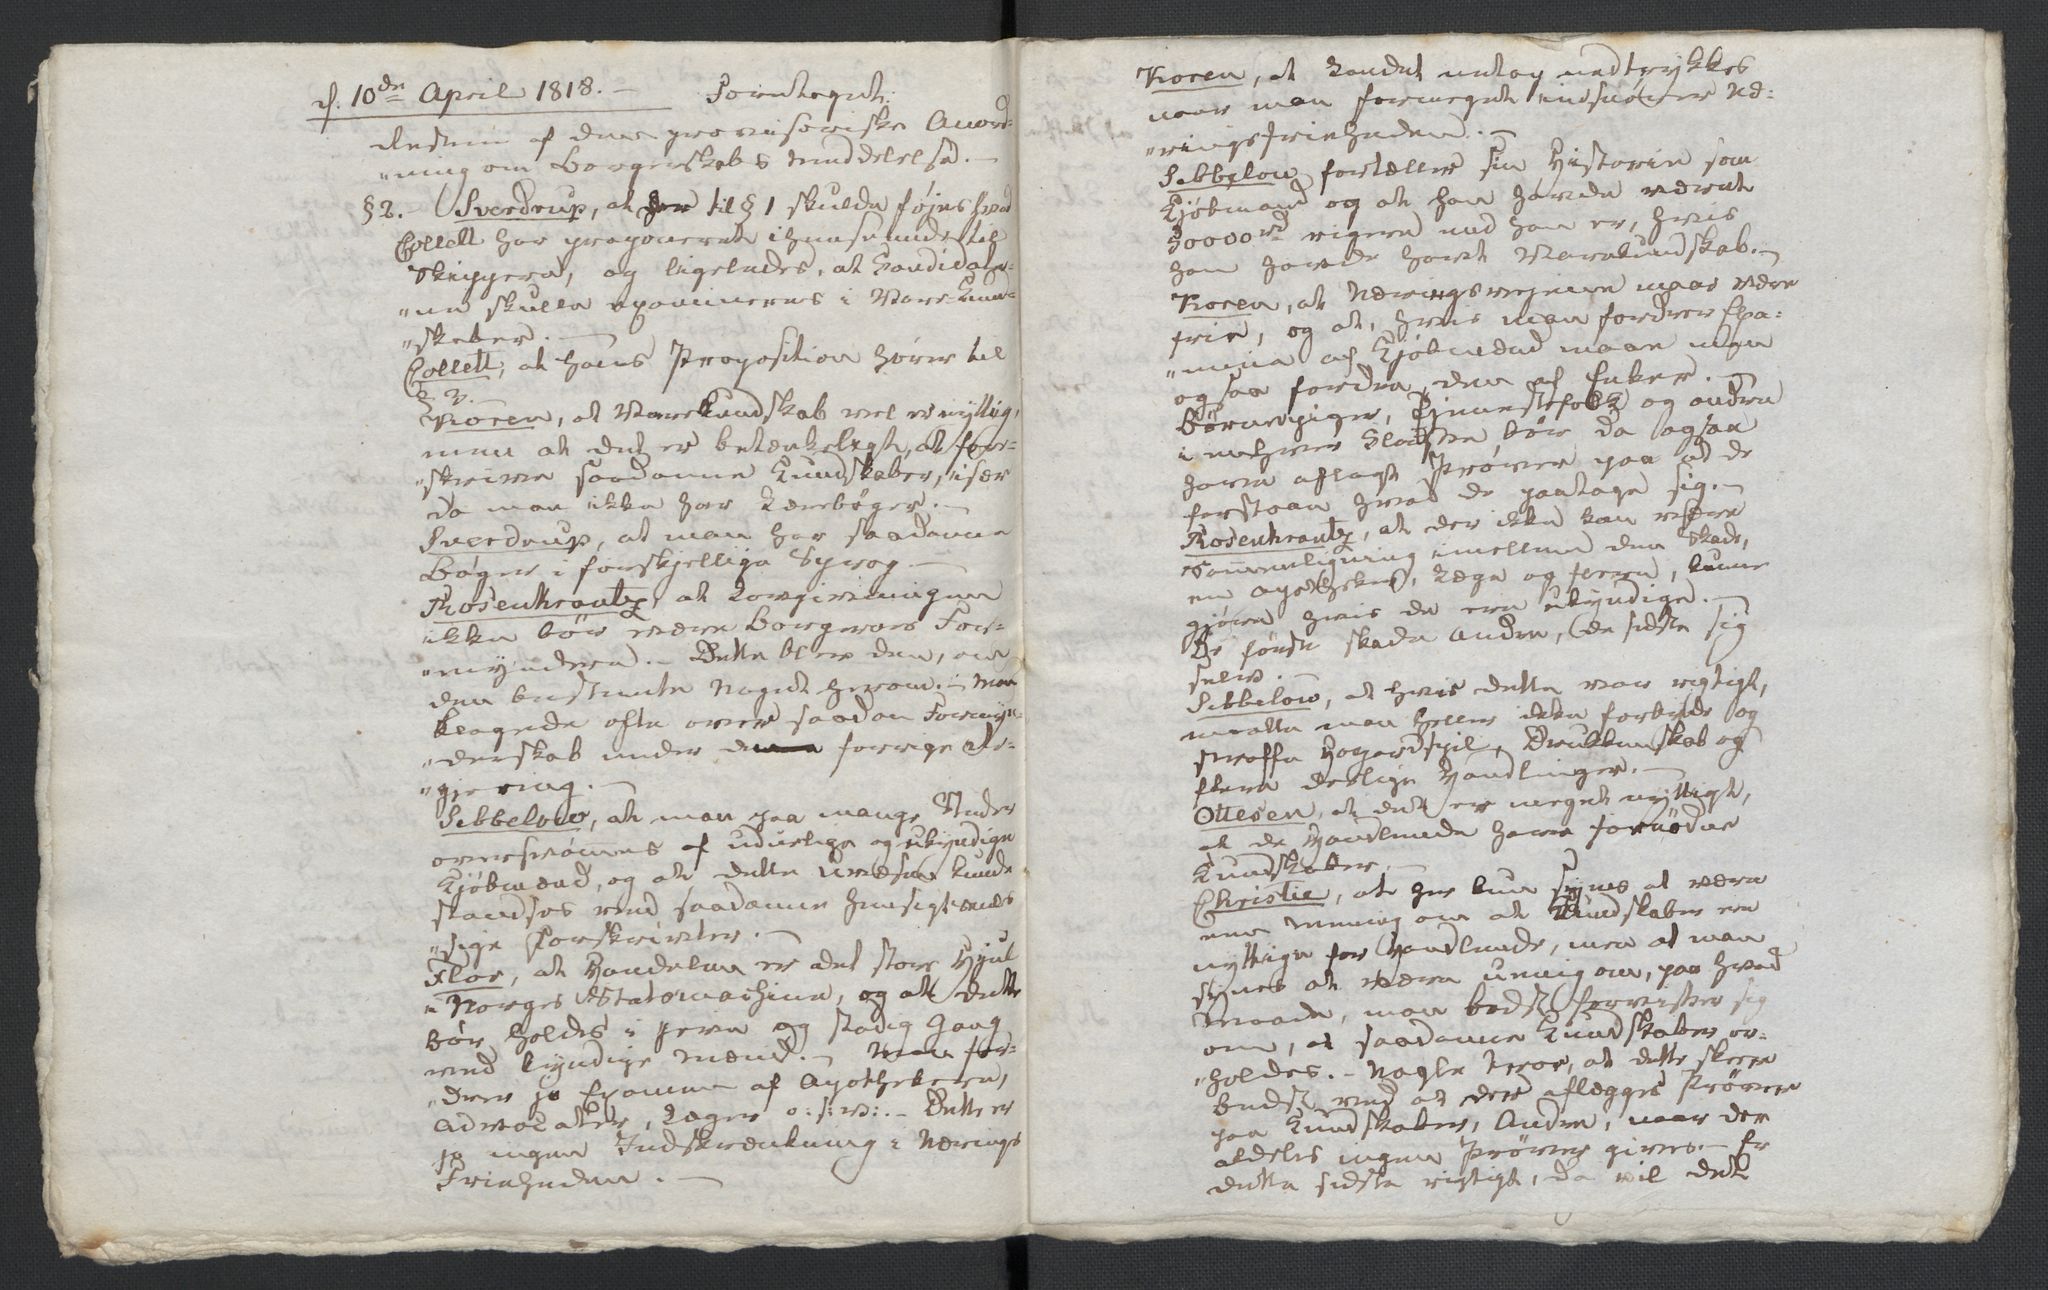 d. 10de April 1818. — Foretoges:
Resten af den provisoriske Anord-
"ning om Borgerskabs Meddelelse. —
§ 2. — Sverdrup, at her til § 1 skulde føjes hvad
Collett har proponeret i henseende til
Skippere, og ligeledes, at Candidater-
"ne skulle examineres i Vare-Kund-
"skaber. —
Collett, at hans Proposition hører til
§ 3. —
Koren, at Varekundskab vel er nyttig,
men at det er betænkeligt, at fore-
"skrive saadanne Kundskaber, især
da man ikke har Lærebøger. —
Sverdrup, at man har saadanne
Bøger i forskjellige Sprog. —
Rosenkrantz, at Lovgivningen
ikke bør være Borgernes For-
"myndere. — Dette blev den, om
den bestemte Noget herom. — Man
klagede ofte over saadan Formyn-
"derskab under den forrige Re-
"gjering. —
Sibbelow, at man paa mange Steder
oversvømmes af uduelige og ukyndige
Kjøbmænd, og at dette Uvæsen kunde
standses ved saadanne hensigtsmæs-
"sige Forskrivter. —
Flor, at Handelen er det store Hjul
i Norges Statsmachine, og at dette
bør holdes i jevn og stadig Gang
ved kyndige Mænd. — Man for-
"drer jo Examen af Apothekere,
Advocater, Læger o: s: v:. — Dette er
jo ingen Indskrænkning i Nærings
Frieheden. —
Koren, at Landet netop nedtrykkes
naar man formeget indsnører Næ-
"ringsfrieheden. —
Sibbelow fortæller sin Historie som
Kjøbmand og at han havde været
30000rd rigere end han er, hvis
han havde havt Varekundskab. —
Koren, at Næringsvejene maae være
frie, og at, hvis man fordrer Exa-
"mina af Kjøbmænd maae man
ogsaa fordre den af Enker. —
Børnepiger, Tjenestefolk og andre
i enhver Klasse bør da ogsaa
have aflagt Prøver paa at de
forstaae hvad de paatage sig. —
Rosenkrantz, at der ikke kan være
Sammenligning imellem den Skade,
en Apotheker, Læge og flere, kunne
gjøre hvis de ere ukyndige. —
De første skade Andre, de sidste sig
selv. —
Sibbelow, at hvis dette var rigtigt,
maatte man heller ikke forbyde og
straffe Hazardspil, Drukkenskab og
flere deslige Handlinger. —
Ottesen, at det er meget nyttigt,
at de Handlende have fornødne
Kundskaber. —
Christie, at her kun synes at være
een Mening om at Kundskaber ere
nyttige for Handlende, men at man
synes at være uenig om, paa hvad
Maade, man bedst forvisser sig
om, at saadanne Kundskaber er-
"holdes. — Nogle troe, at dette skeer
bedst ved at der aflægges Prøver
paa Kundskaber, Andre, naar der
aldeles ingen Prøver gives. — Er
dette sidste rigtigt, da vil det